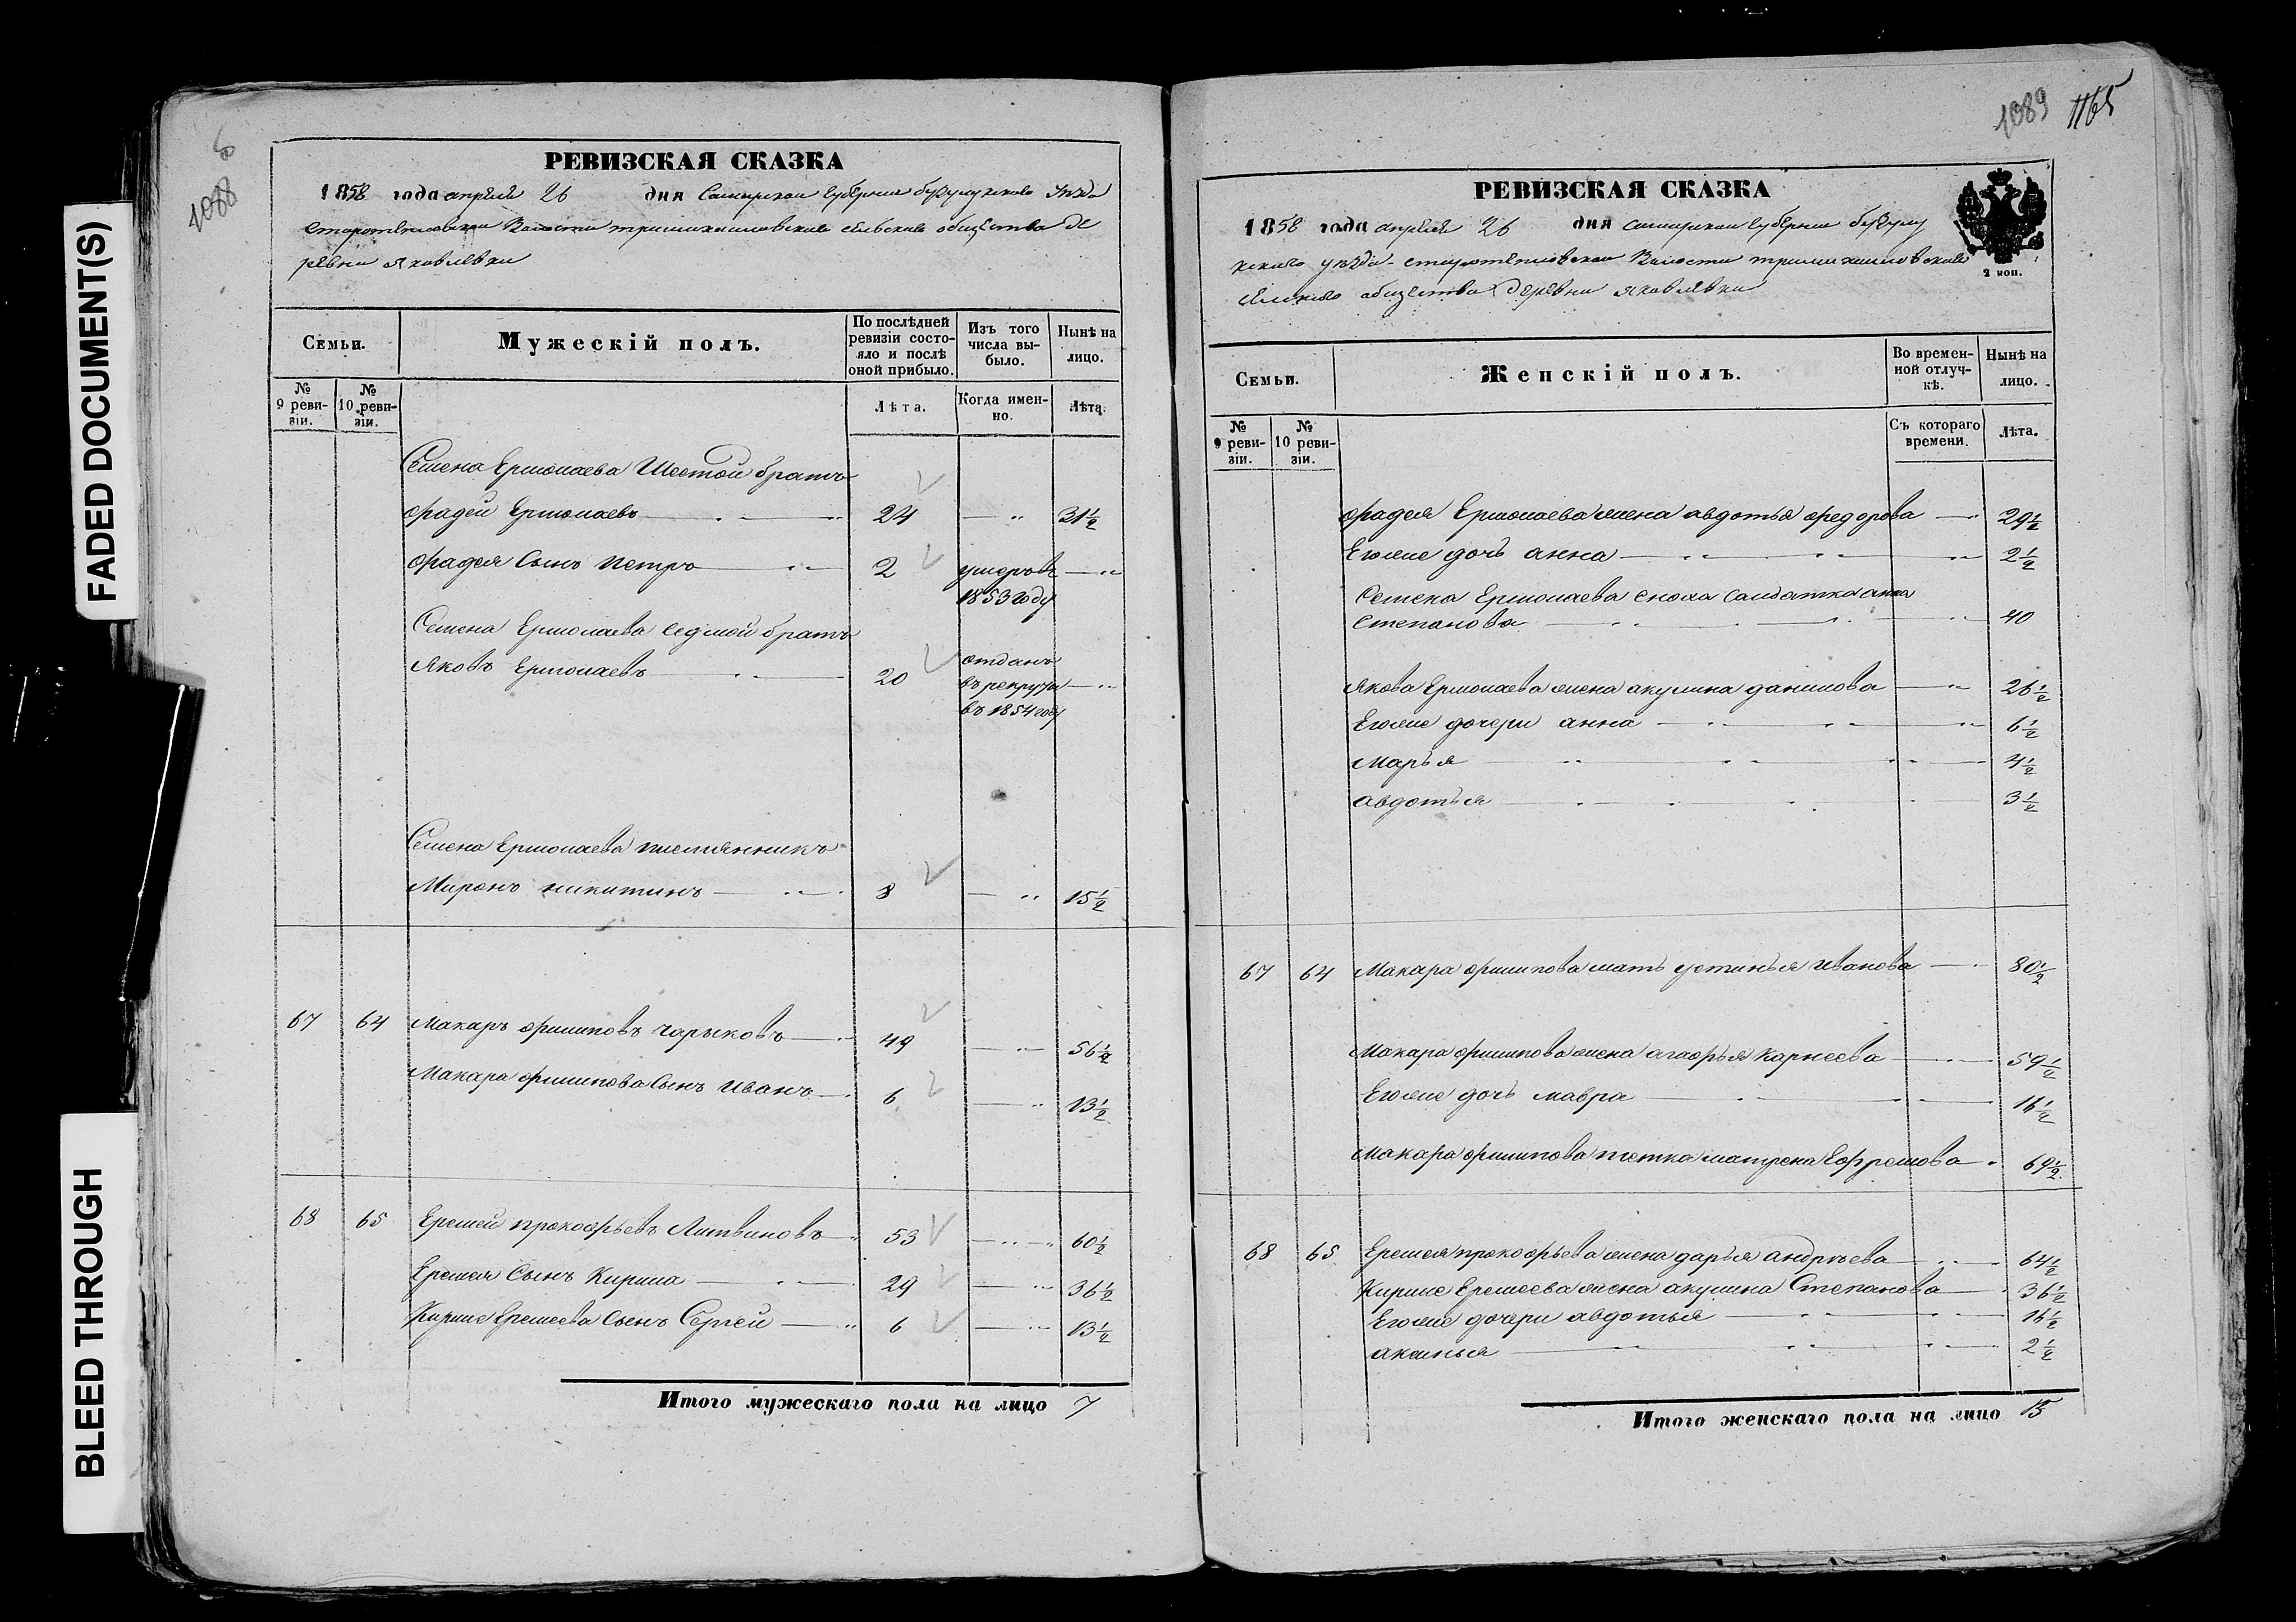 FADED DOCUMENT(S)
BLEED THROUGH
1088
РЕВИЗСКАЯ СКАЗКА
1858 года апреля 26 дня Самарской губернии бузулукскаго уезда
старотепловской Волости тримихайловскаго сельскаго общества де
ревни яковлевки
Семьи.
Мужескій полъ.
По послѣдней ревизіи состояло и послѣ оной прибыло.
Изъ того числа выбыло.
Нынѣ на лицо.
№ 9 ревизіи.
№ 10 ревизіи.
Лѣта.
Когда именно.
Лѣта.
Семена Ермолаева Шестой братъ
фадей Ермолаевъ 24 31½
фадея Сынъ петръ 2 умеръ въ
1853 году
Семена Ермолаева седмой братъ
Яковъ Ермолаевъ 20 отданъ
въ рекруты
въ 1854 году
Семена Ермолаева племянникъ
Миронъ никитинъ 8 15½
67 64 Макаръ филиповъ чарыковъ 49 56½
Макара филипова Сынъ Иванъ 6 13½
68 65 Еремей прокофьевъ Литвиновъ 53 60½
Еремея Сынъ Кирила 29 36½
Кирилы Еремеева Сынъ Сергей 6 13½
Итого мужескаго пола на лицо 7
1089 1165
РЕВИЗСКАЯ СКАЗКА
1858 года апреля 26 дня самарской губернии бузулу
кскаго уезда старотепловской Волости тримихаиловскаго
сельскаго общества деревни яковлевки
2 коп.
Семьи.
Женскій полъ.
Во временной отлучкѣ.
Нынѣ на лицо.
№ 9 ревизіи.
№ 10 ревизіи.
Съ котораго времени.
Лѣта.
фадея Ермолаева жена авдотья федорова 29½
Егоже дочь анна 2½
Семена Ермолаева сноха салдатка анна
степанова 40
якова Ермолаева жена акулина данилова 26½
Егоже дочери анна 6½
марья 4½
авдотья 3½
67 64 Макара филипова мать устинья Иванова 80½
Макара филипова жена агафья Карнеева 59½
Егоже дочь мавра 16½
Макара филипова тетка матрена Ефремова 69½
68 65 Еремея прокофьева жена дарья андреева 64½
Кирилы Еремеева жена акулина Степанова 36½
Егоже дочери авдотья 16½
аксинья 2½
Итого женскаго пола на лицо 15